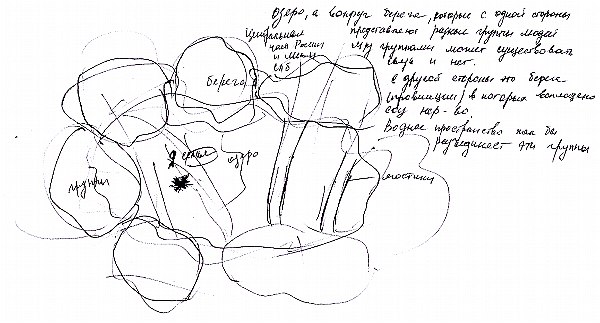 озеро, а вокруг берега, которые с одной стороны
представляют разные группы людей
М/у группами может существовать
связь и нет.
с другой стороны это берега
(провинции) в которых воплощено
все нар-во.
Водное пространство как бы
разъединяет эти группы
Центральная
часть России
и
берега
озеро
группы
мостики